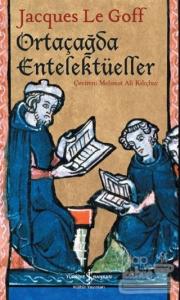 Jacques Le Goff
Ortaçağda
Entelektüeller
Çeviren: Mehmet Ali Kılıçbay
TÜRKİYE BANKASI
Kültür Yayınları